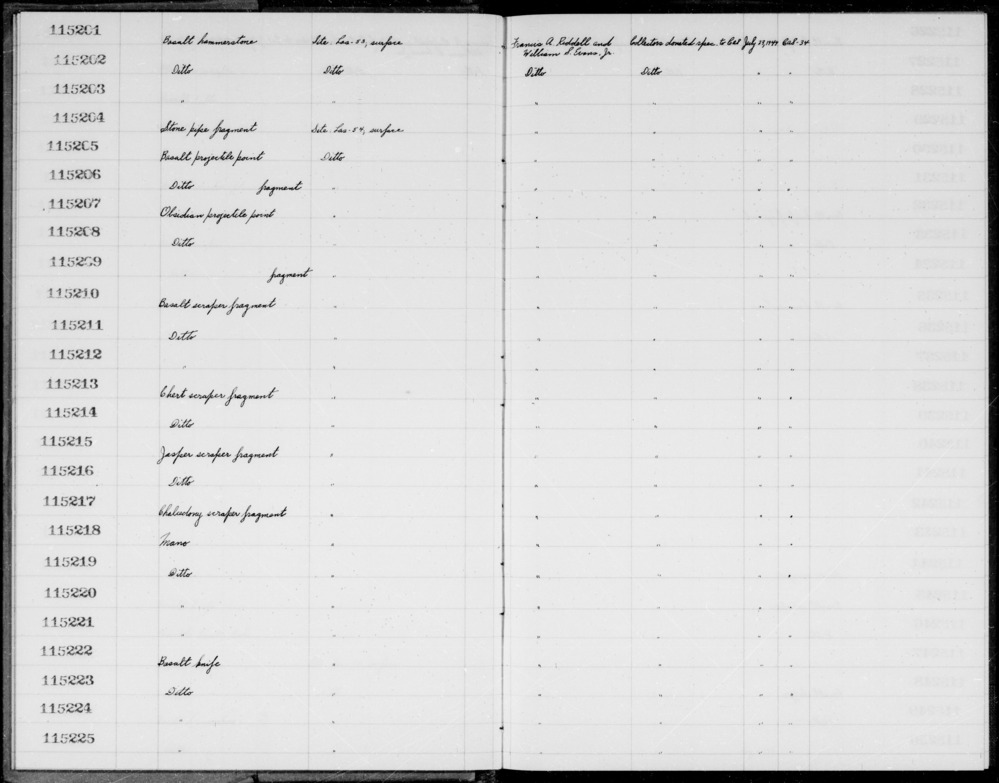 115201 Basalt hammerstone Site. Las-53, surface Francis A. Riddell and Collectors donated spec. to Cal July 29, 1949 Cal-34
William S. Evans, Jr.
115202 Ditto Ditto Ditto Ditto " "
115203 " " " " "
115204 Stone pipe fragment Site. Las-54, surface " " " "
115205 Basalt projectile point Ditto " " " "
115206 Ditto fragment " " " " "
115207 Obsidian projectile point " " " " "
115208 Ditto " " " " "
115209 " fragment " " " " "
115210 Basalt scraper fragment " " " " "
115211 Ditto " " " " "
115212 " " " " " "
115213 Chert scraper fragment " " " " "
115214 Ditto " " " " "
115215 Jasper scraper fragment " " " " "
115216 Ditto " " " " "
115217 Chalcedony scraper fragment " " " " "
115218 Mano " " " " "
115219 Ditto " " " " "
115220 " " " " " "
115221 " " " " " "
115222 Basalt knife " " " " "
115223 Ditto " " " " "
115224 " " " " " "
115225 " " " " " "